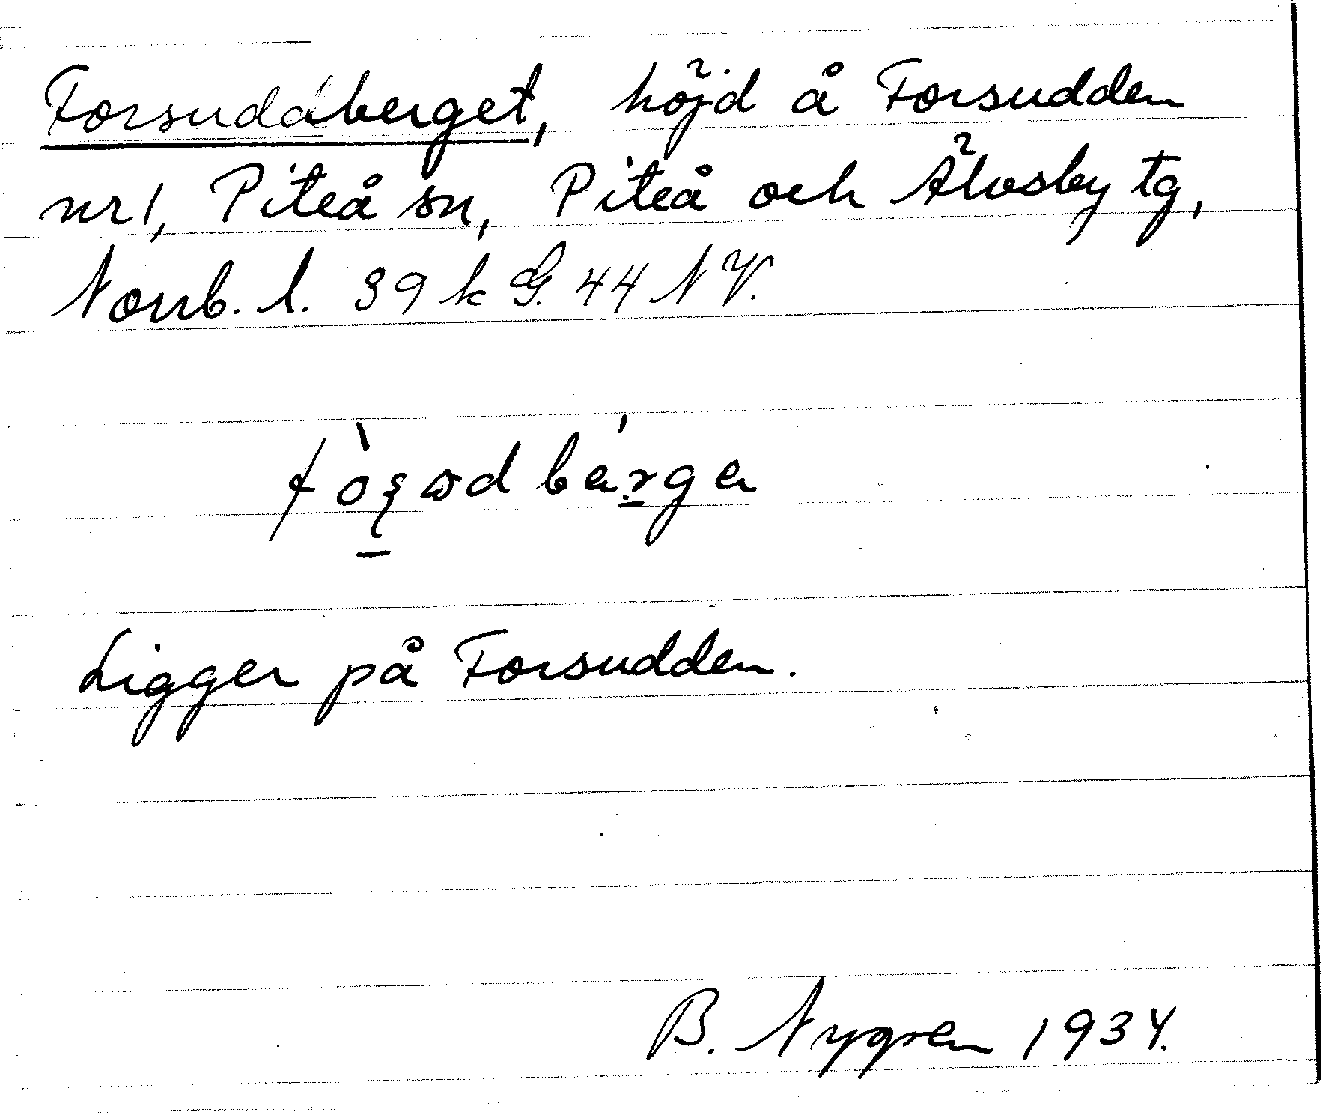 Forsuddberget, höjd å Forsudden
nr 1, Piteå sn, Piteå och Älvsby tg,
Norrb. l. 39 k G. 44 NV.
Ligger på Forsudden.
B. Nygren 1934.